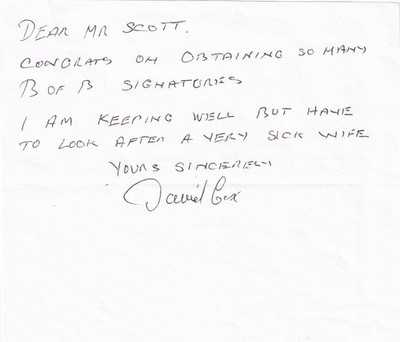 DEAR MR SCOTT.
CONGRATS ON OBTAINING SO MANY
B OF B SIGNATORIES
I AM KEEPING WELL BUT HAVE
TO LOOK AFTER A VERY SICK WIFE
YOURS SINCERELY
David Cox